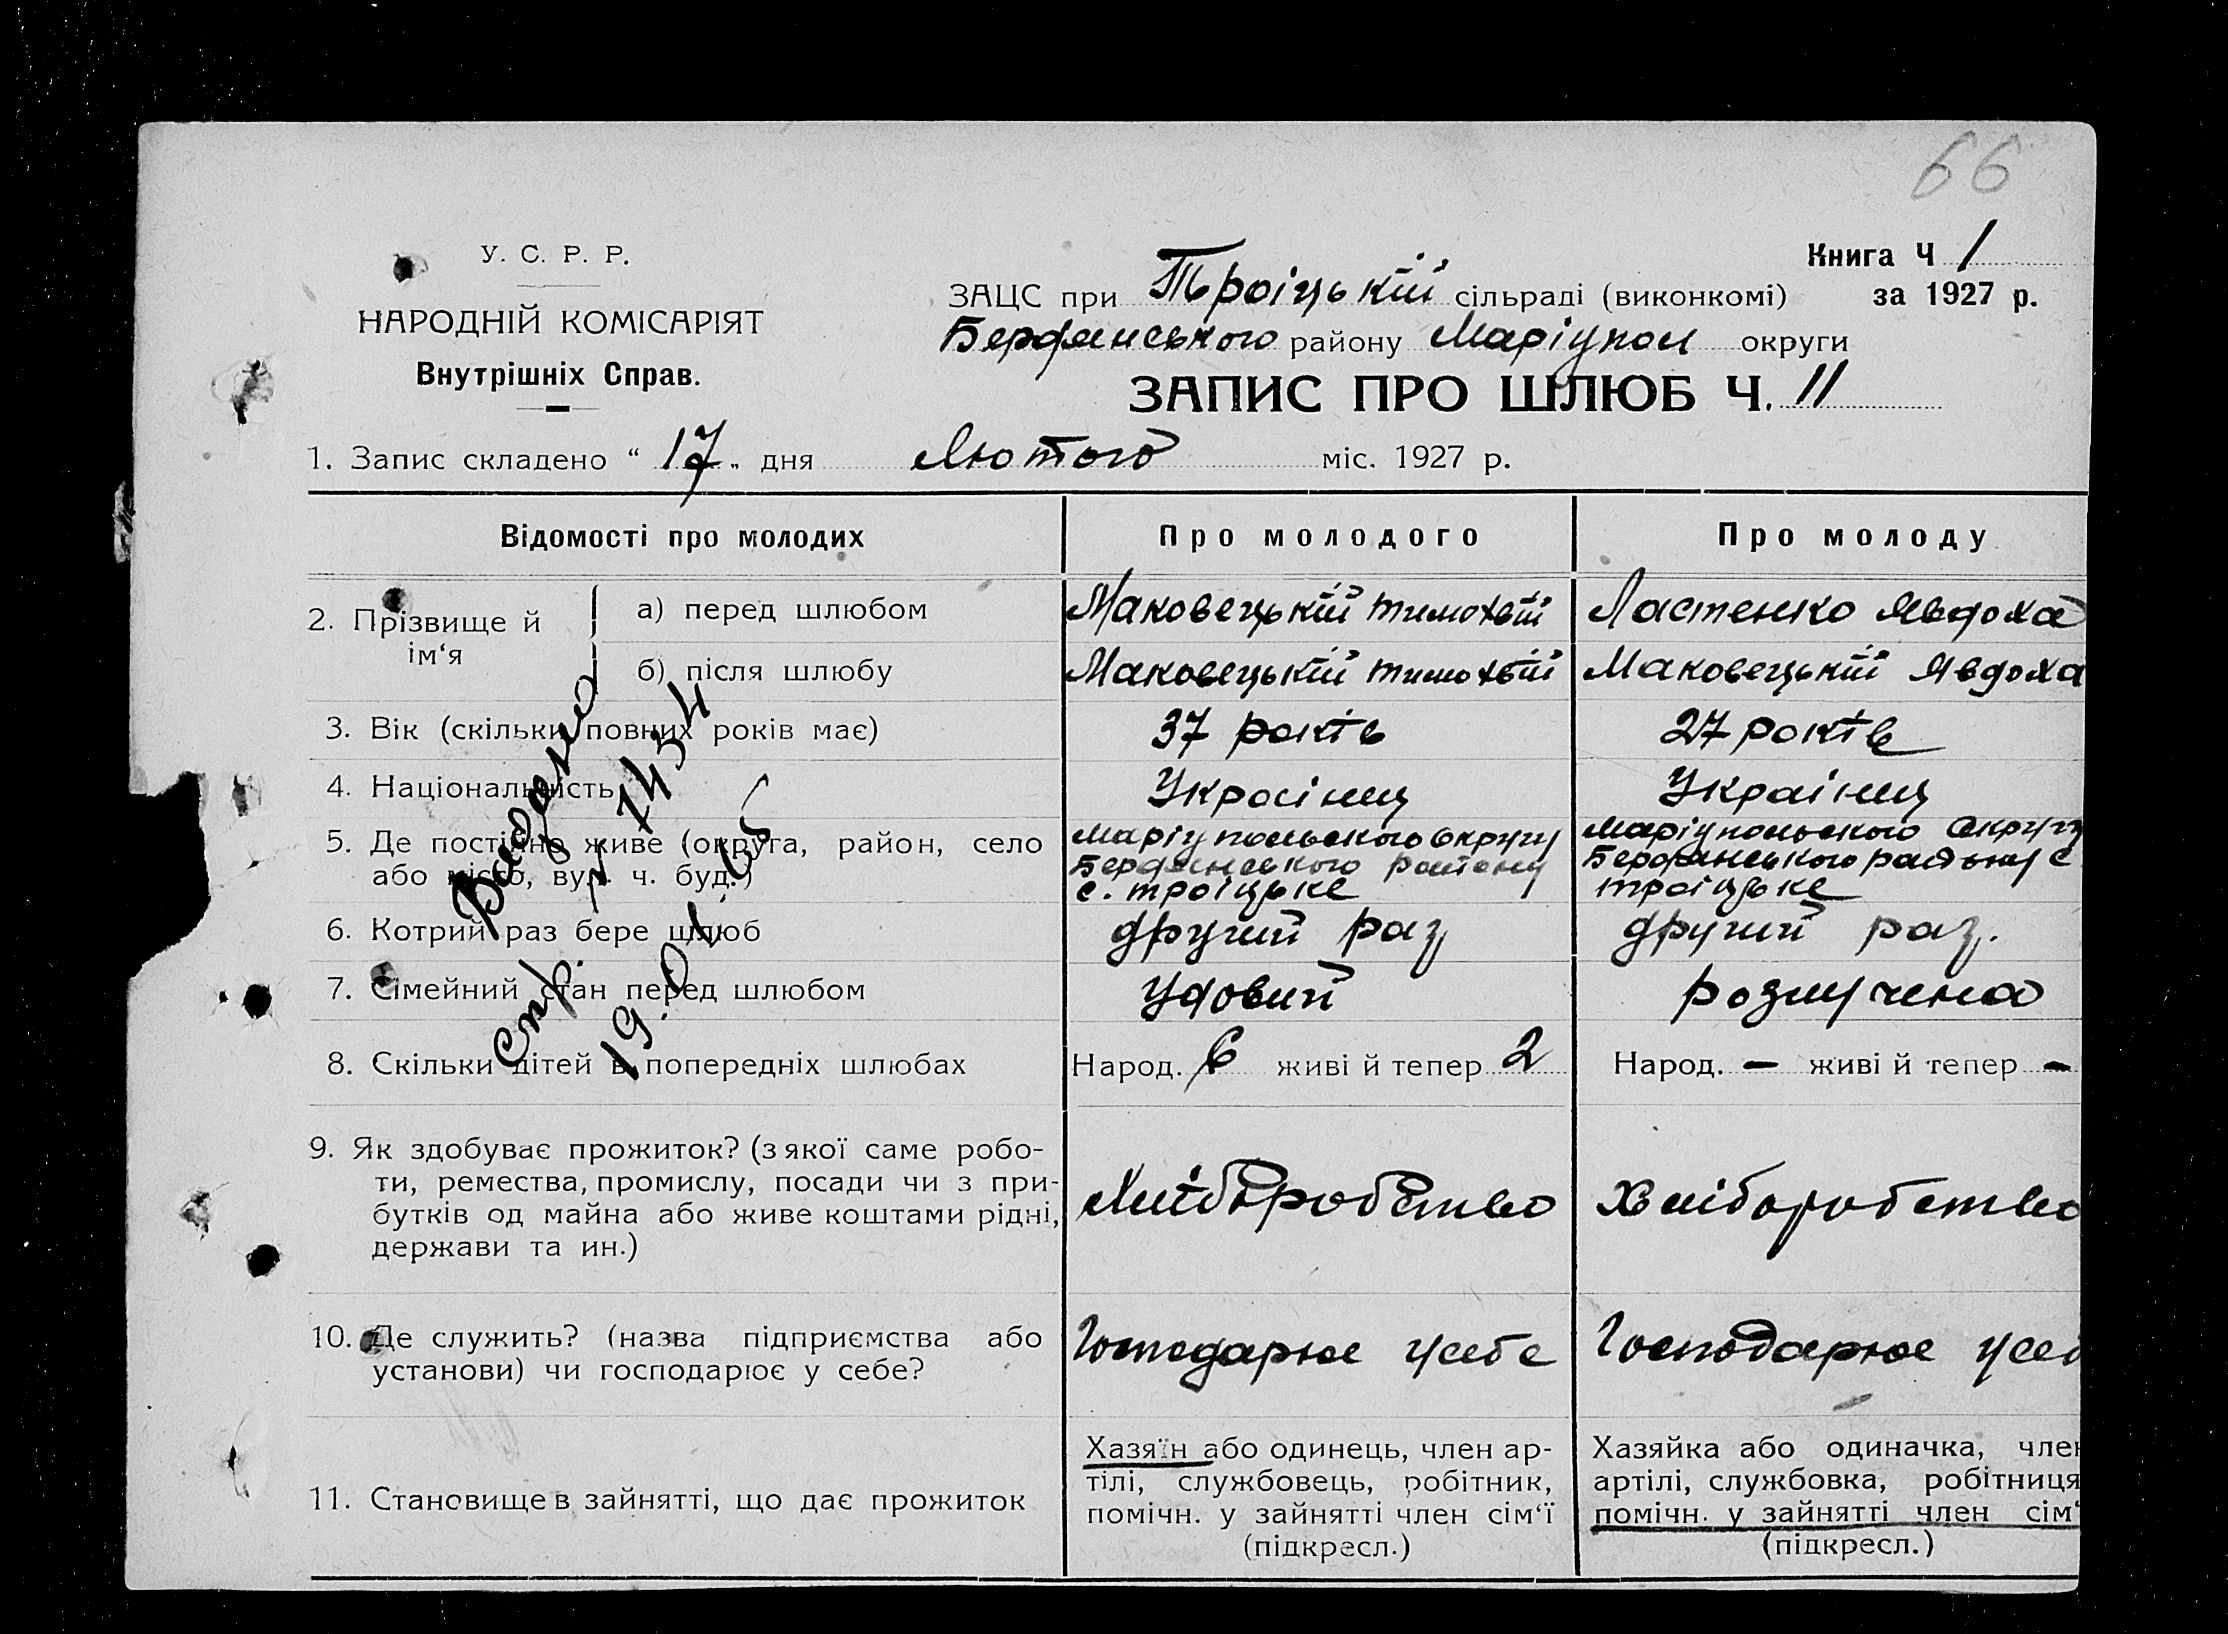 66
У. С. Р. Р.
НАРОДНІЙ КОМІСАРІЯТ
Внутрішніх Справ.
Книга Ч 1
за 1927 р.
ЗАЦС при Троіцькій сільраді (виконкомі)
Бердянського району Маріупол округи
ЗАПИС ПРО ШЛЮБ Ч. 11
1. Запис складено “ 17 „ дня Лютого міс. 1927 р.
Відомості про молодих
Про молодого
Про молоду
2. Прізвище й ім‘я
а) перед шлюбом
Маковецькій Тимохвій
Ластенко Явдоха
б) після шлюбу
Маковецькій Тимохвій
Маковецькій Явдоха
3. Вік (скільки повних років має)
37 років
27 років
4. Національність
Українец
Українец
5. Де постійно живе (округа, район, село
або місто, вул. ч. буд.)
Маріупольского округу
Бердянського району
с. Троіцьке
Маріупольского округу
Бердянського району с
Троіцьке
6. Котрий раз бере шлюб
другий раз
другий раз.
7. Сімейний стан перед шлюбом
Удовий
розлучена
8. Скільки дітей в попередніх шлюбах
Народ. 6 живі й тепер 2
Народ. – живі й тепер –
9. Як здобуває прожиток? (з якої саме робо-
ти, ремества, промислу, посади чи з при-
бутків од майна або живе коштами рідні,
держави та ин.)
Хліборобство
Хліборобство
10. Де служить? (назва підприємства або
установи) чи господарює у себе?
Господарює усебе
Господарює усеб
11. Становище в зайнятті, що дає прожиток
Хазяїн або одинець, член ар-
тілі, службовець, робітник,
помічн. у зайнятті член сім‘ї
(підкресл.)
Хазяйка або одиначка, член
артілі, службовка, робітниця
помічн. у зайнятті член сім‘
(підкресл.)
Видано
Спр. 19.01.65